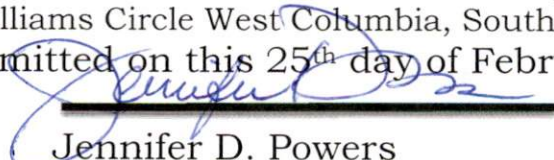 lliams Circle West Columbia, South
mitted on this 25th day of Febr
Jennifer D. Powers